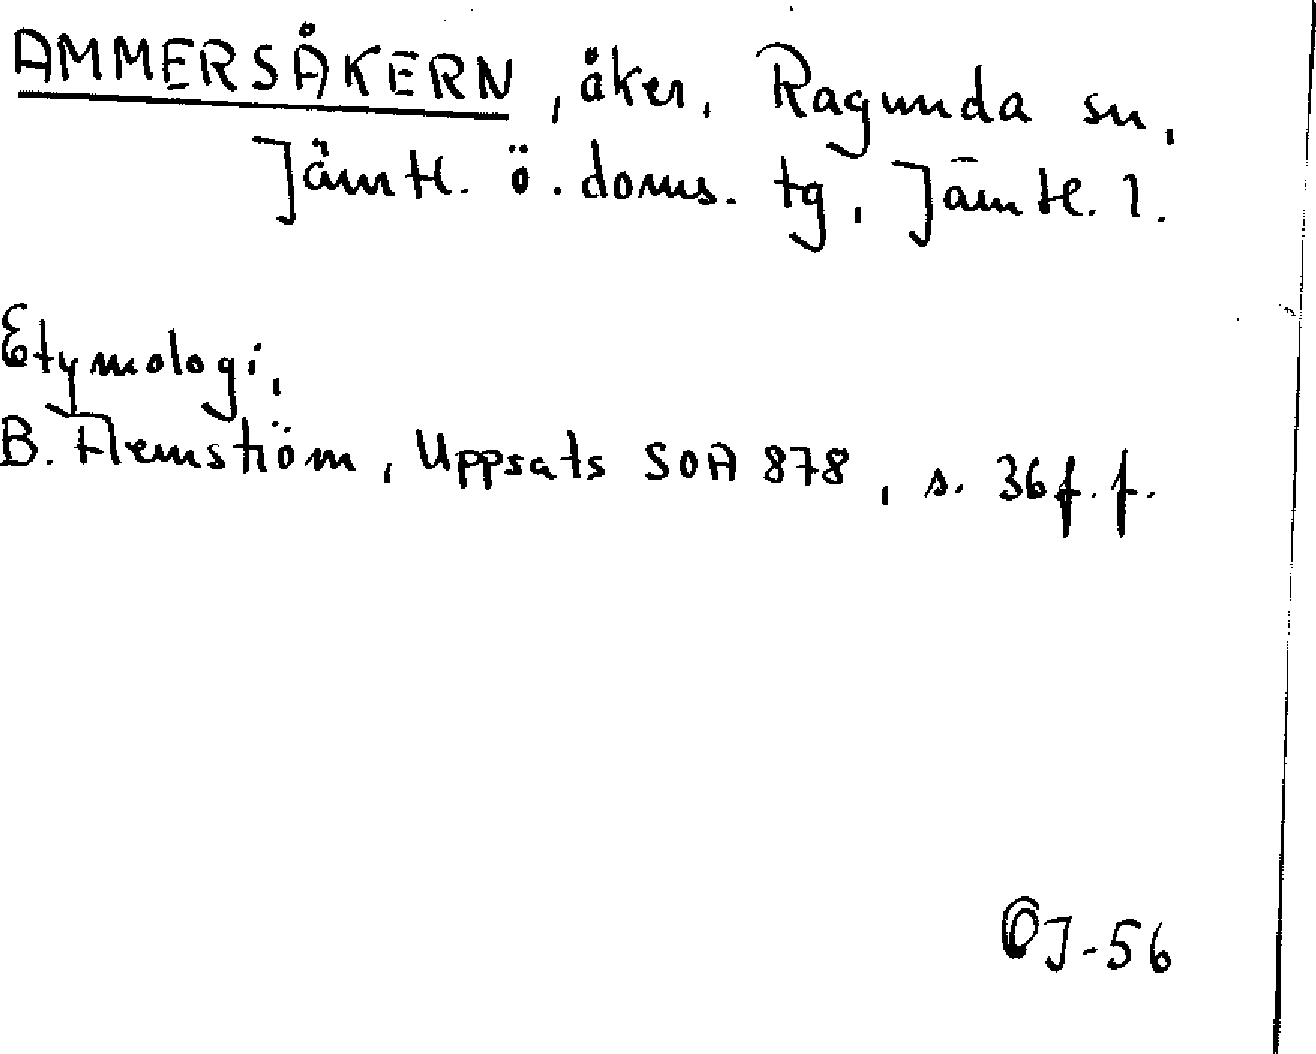 AMMERSÅKERN, åker, Ragunda sn,
Jämtl. ö. doms. tg, Jämtl. l.
Etymologi,
B. Flemström, Uppsats SOA 878, s. 36 f.f.
OJ-56